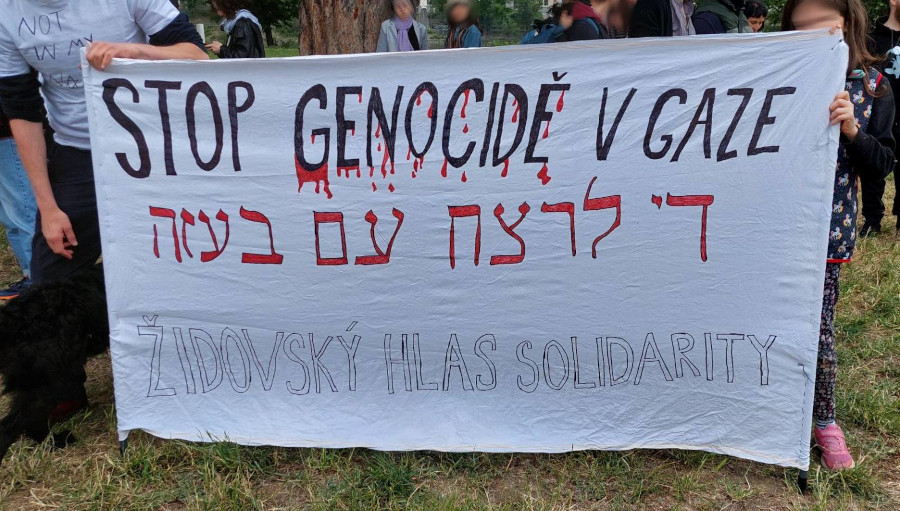 NOT
W MY
STOP GENOCIDĚ V GAZE
די לרצח עם בעזה
ŽIDOVSKÝ HLAS SOLIDARITY